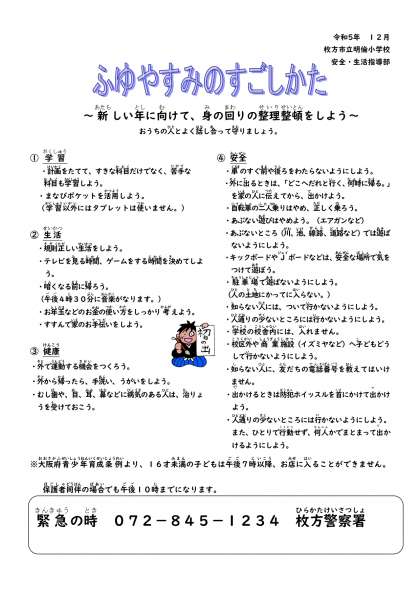 令和5年 12月
枚方市立明倫小学校
安全・生活指導部
ふゆやすみのすごしかた
～新しい年に向けて、身の回りの整理整頓をしよう～
おうちの人とよく話し合って守りましょう。
① 学習
・計画をたてて、すきな科目だけでなく、苦手な
科目も学習しよう。
・まなびポケットを活用しよう。
（学習以外にはタブレットは使いません。）
② 生活
・規則正しい生活をしよう。
・テレビを見る時間、ゲームをする時間を決めてしよ
う。
・暗くなる前に帰ろう。
（午後4時30分に音楽がなります。）
・お年玉などのお金の使い方をしっかり考えよう。
・すすんで家のお手伝いをしよう。
初日の出
③ 健康
・外で運動する機会をつくろう。
・外から帰ったら、手洗い、うがいをしよう。
・むし歯や、目、耳、鼻などに病気のある人は、治りょ
うを受けておこう。
④ 安全
・車のすぐ前や後ろをわたらないようにしよう。
・外に出るときは、「どこへだれと行く、何時に帰る。」
を家の人に伝えてから、出かけよう。
・自転車の二人乗りはやめ、正しく乗ろう。
・あぶない遊びはやめよう。（エアガンなど）
・あぶないところ（川、池、線路、道路など）では遊ば
ないようにしよう。
・キックボードやJボードなどは、安全な場所で気を
つけて遊ぼう。
・駐車場で遊ばないようにしよう。
（人の土地にかってに入らない。）
・知らない人には、ついて行かないようにしよう。
・人通りの少ないところには行かないようにしよう。
・学校の校舎内には、入れません。
・校区外や商業施設（イズミヤなど）へ子どもどう
しで行かないようにしよう。
・知らない人に、友だちの電話番号を教えてはいけ
ません。
・出かけるときは防犯ホイッスルを首にかけて出かけ
よう。
・人通りの少ないところには行かないようにしよう。
また、ひとりで行動せず、何人かでまとまって出か
けるようにしよう。
※大阪府青少年育成条例より、16才未満の子どもは午後7時以降、お店に入ることができません。
保護者同伴の場合でも午後10時までになります。
緊急の時 072－845－1234 枚方警察署